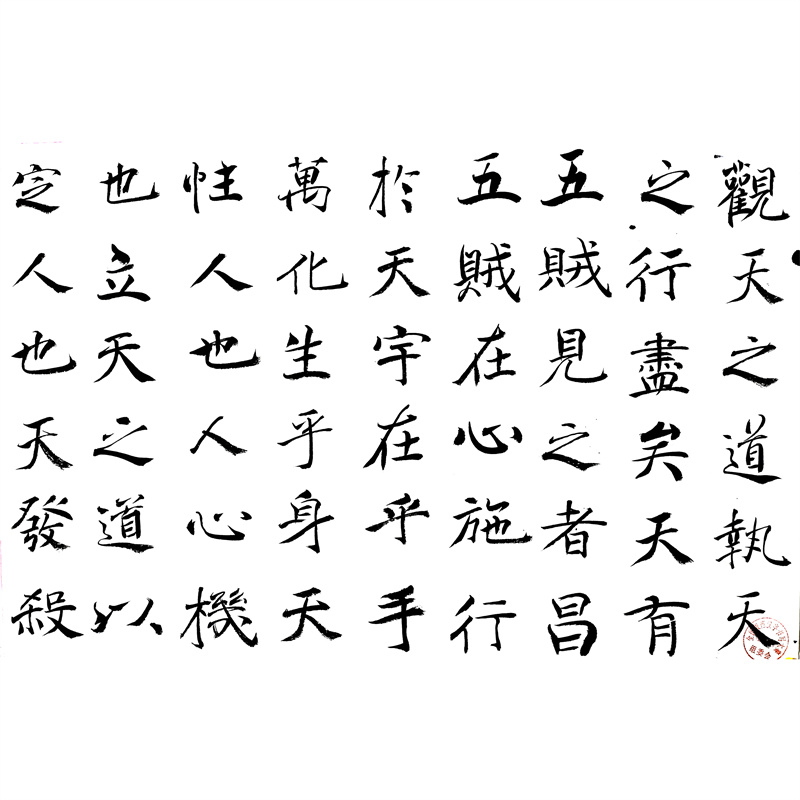 觀天之道執天
之行盡矣天有
五賊見之者昌
五賊在心施行
於天宇在乎手
萬化生乎身天
性人也人心機
也立天之道以
定人也天發殺